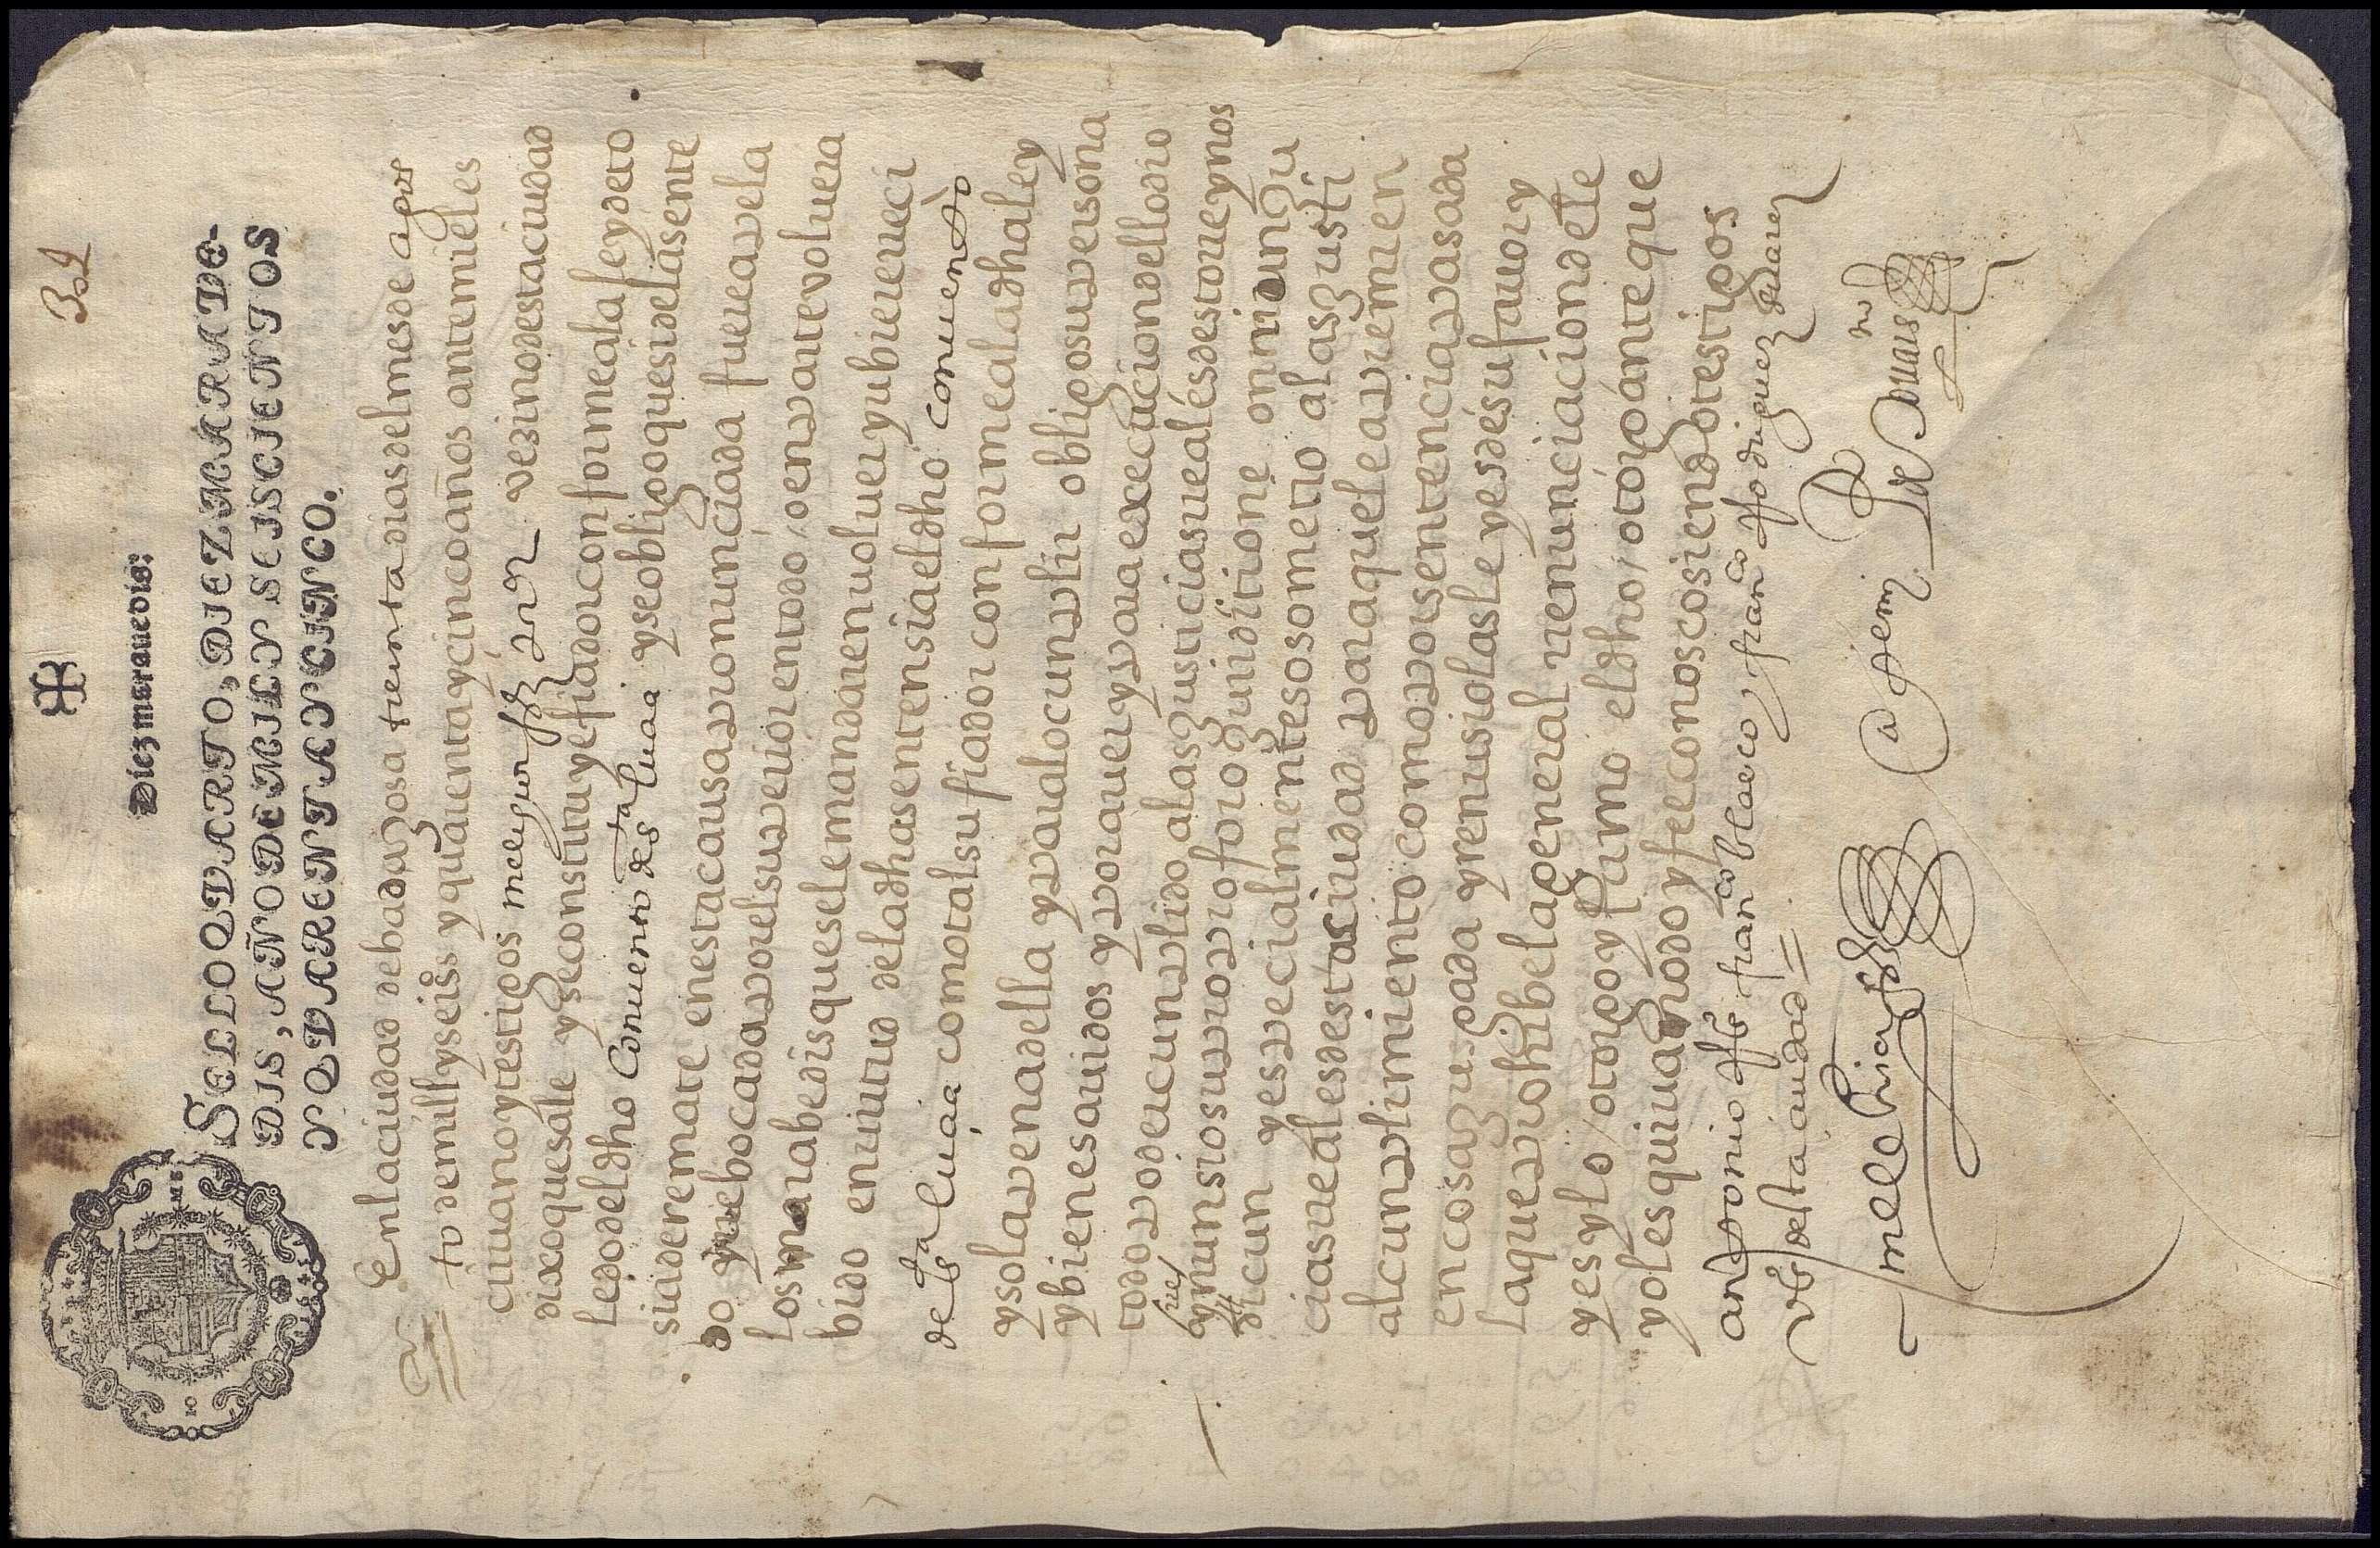 301
Diez marauedis:
SELLO QVARTO, DIEZ MARAVE-
DIS, AÑO DE MIL Y SEISCIENTOS
Y QVARENTA Y CINCO.
En la ciudad de badajoz a treinta dias del mes de agos
to de mill y seisºs y quarenta y cinco años ante mi el es
criuano y testigos melchior vezino desta ciudad
dixo que sale y se constituye fiador conforme a la fey de to
ledo del dho Conuento de sta luçia y se obligo que si de la sente
sia de remate en esta causa pronunçiada fuere apela
do y rebocada por el superior en todo / o en parte voluera
los marabedis que se le mandaren uoluer y ubiere reci
bido en uirtud de la dha sentensia el dho conuento
de sta luçia como tal su fiador conforme a la dha ley
y so la pena della y para lo cunplir obligo su persona
y bienes auidos y por auer y para execucion dello dio
todo poder cunplido a las justicias reales de su fuero y nos
y renunsio su propio foro juridition e domi
sicun y espesialmente se sometio a las justi
cias reales desta ciudad para que le apremien
al cunplimiento como por sentencia pasada
en cosa juzgada y renusio las leyes de su fauor y
la que prohibe la general renunciacion de le
yes y lo / otorgo y firmo el dho / otorgante que
yo el escriuano doy fee conosco siendo testigos
antonio franco blasco y franco Rodriguez
vºs desta ciudad =
melchior
ante mi